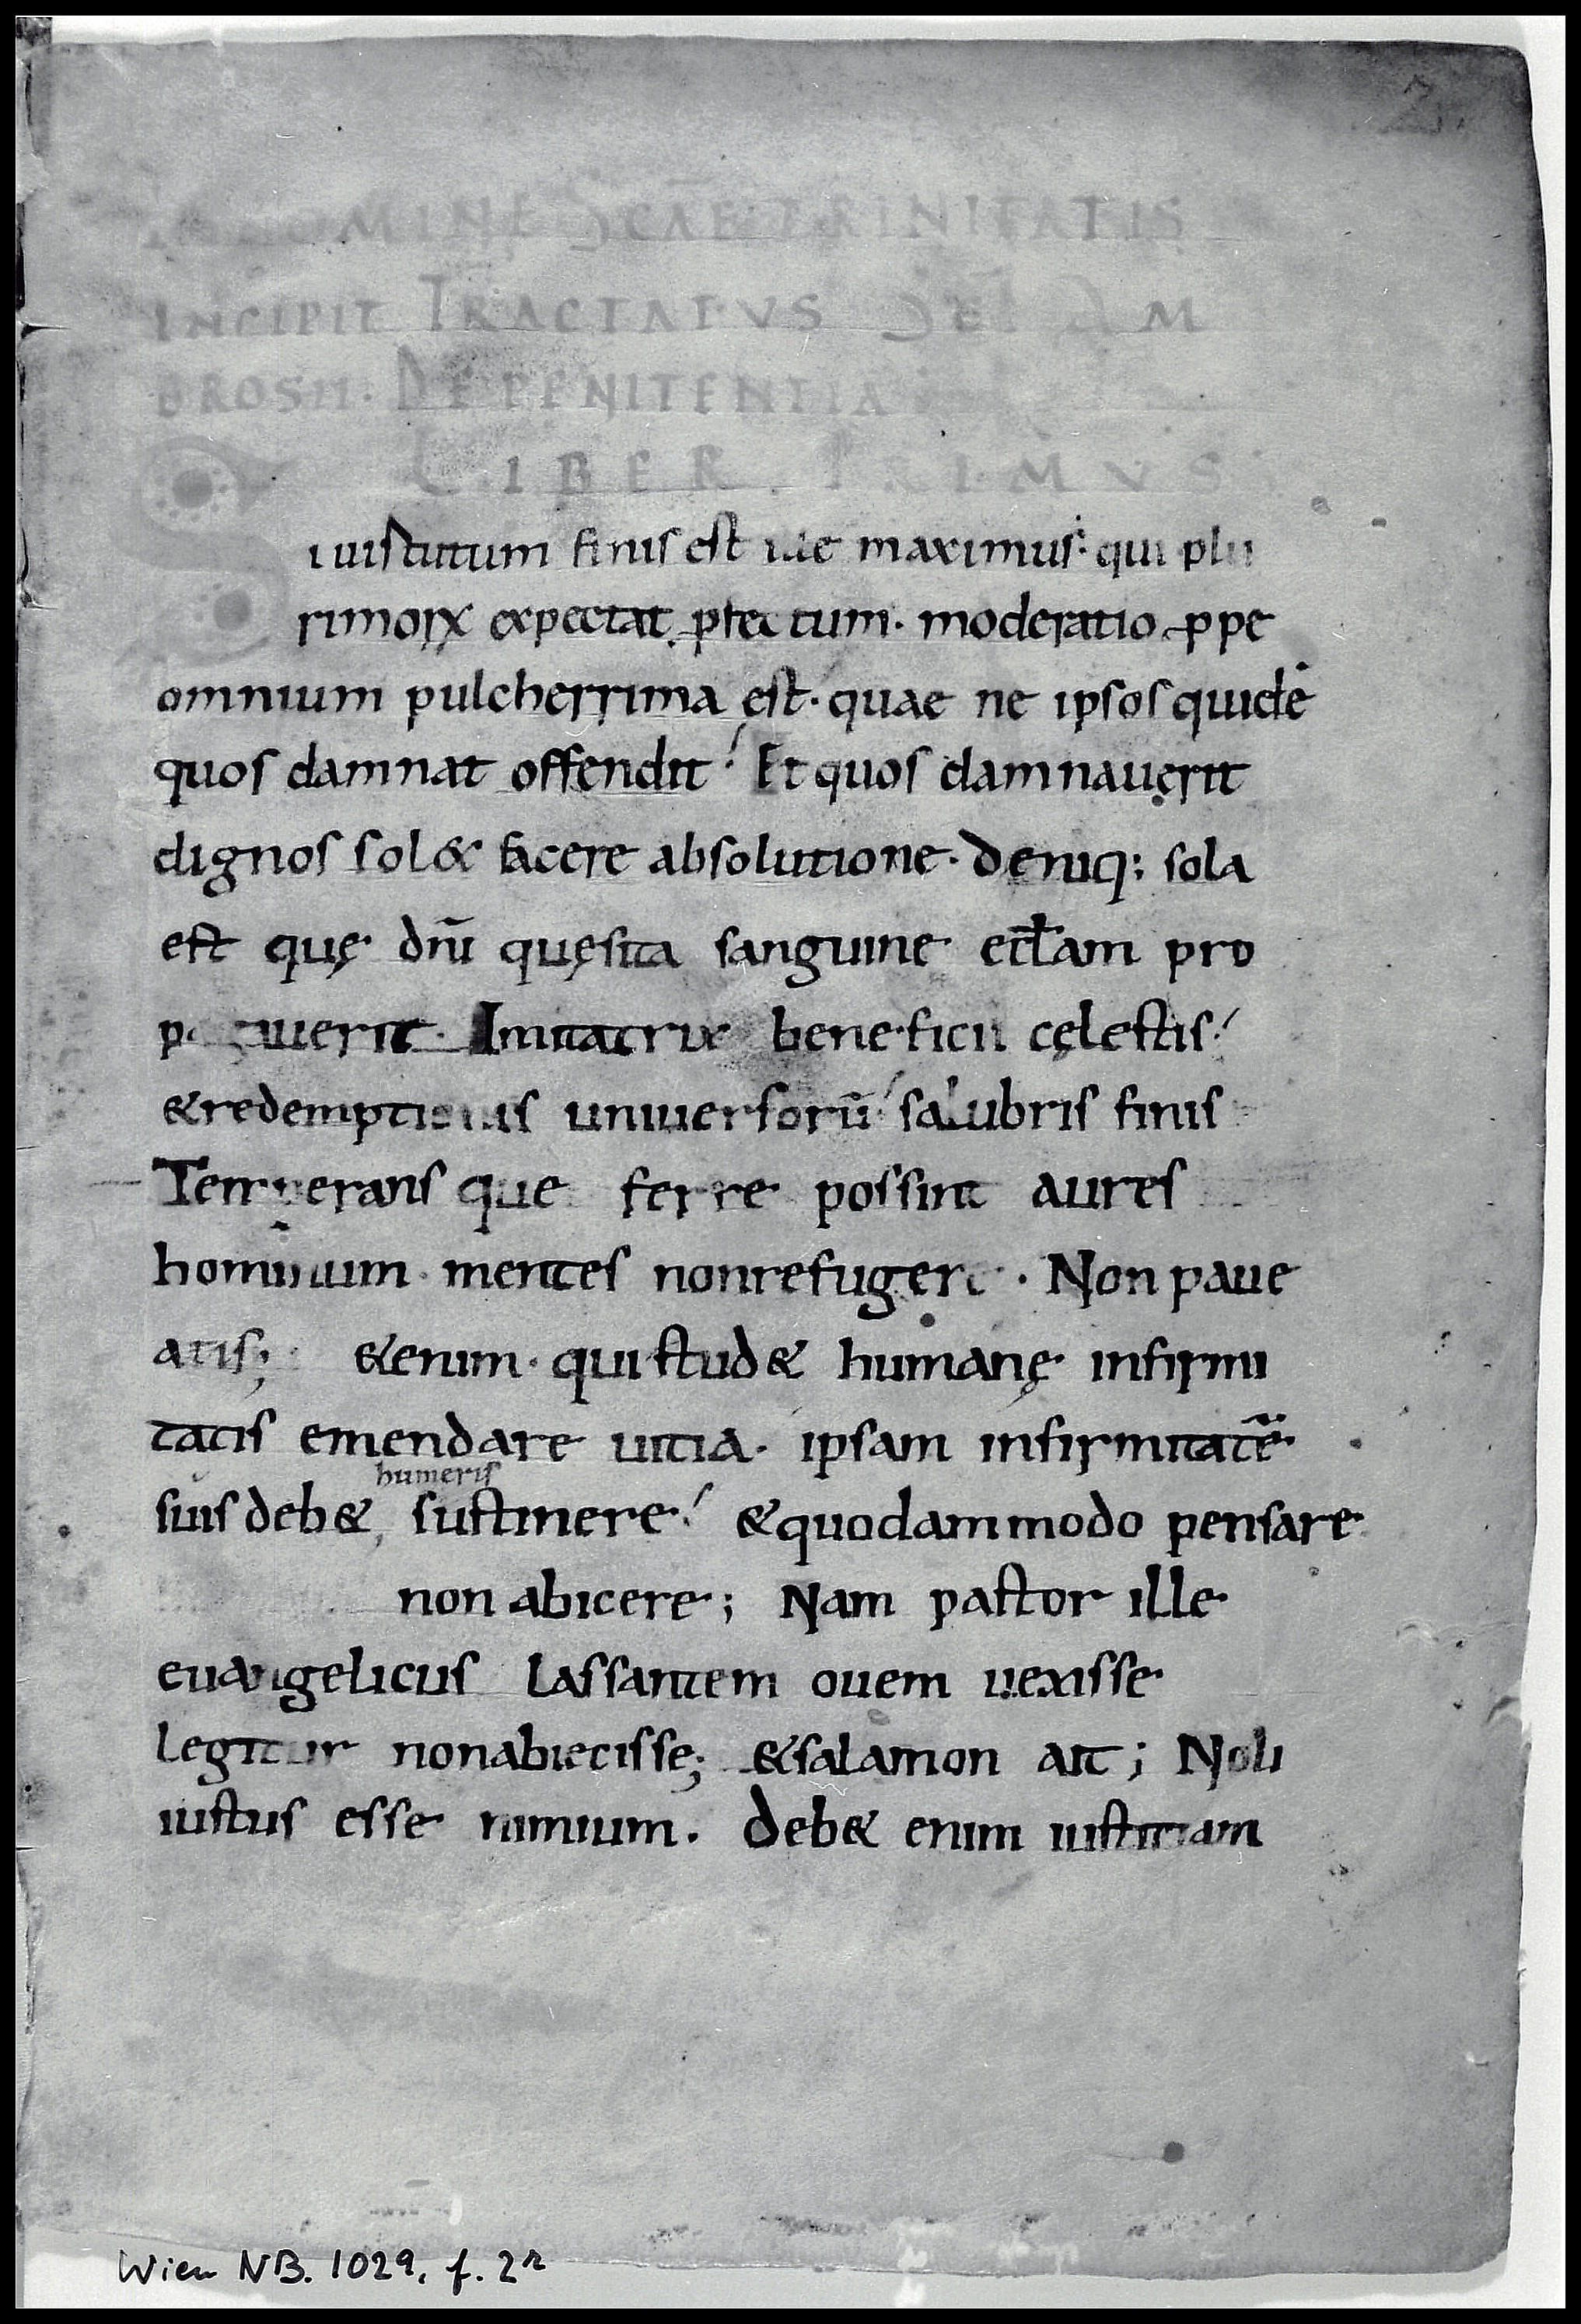 2
IN NOMINE SCAE TRINITATIS
INCIPIT TRACTATVS SCI AM
BROSII. DE PENITENTIA
LIBER PRIMVS
Si uirtutum finis est ille maximus· qui plu
rimorꝝ expectat ꝓfectum· moderatio ꝓpe
omnium pulcherrima est· quae ne ipsos quidē
quos damnat offendit! Et quos damnauerit
dignos sol& facere absolutione· Deniq; sola
est quę dn̄i quęsita sanguine eccłam pro
pagauerit· Imitatrix beneficii cęlestis!
&redemptionis uniuersorū! salubris finis
Temperans que ferre possint aures
hominum· mentes nonrefugere· Non paue
atis; &enim· qui stud& humanę infirmi
tatis emendare uitia· ipsam infirmitatē
humeris
suis deb&, sustinere! &quodammodo pensare
non abicere; Nam pastor ille
euangelicus lassantem ouem uexisse
legitur nonabiecisse; &salamon ait; Noli
iustus esse nimium. Deb& enim iustitiam
Wien NB. 1029, f. 2r